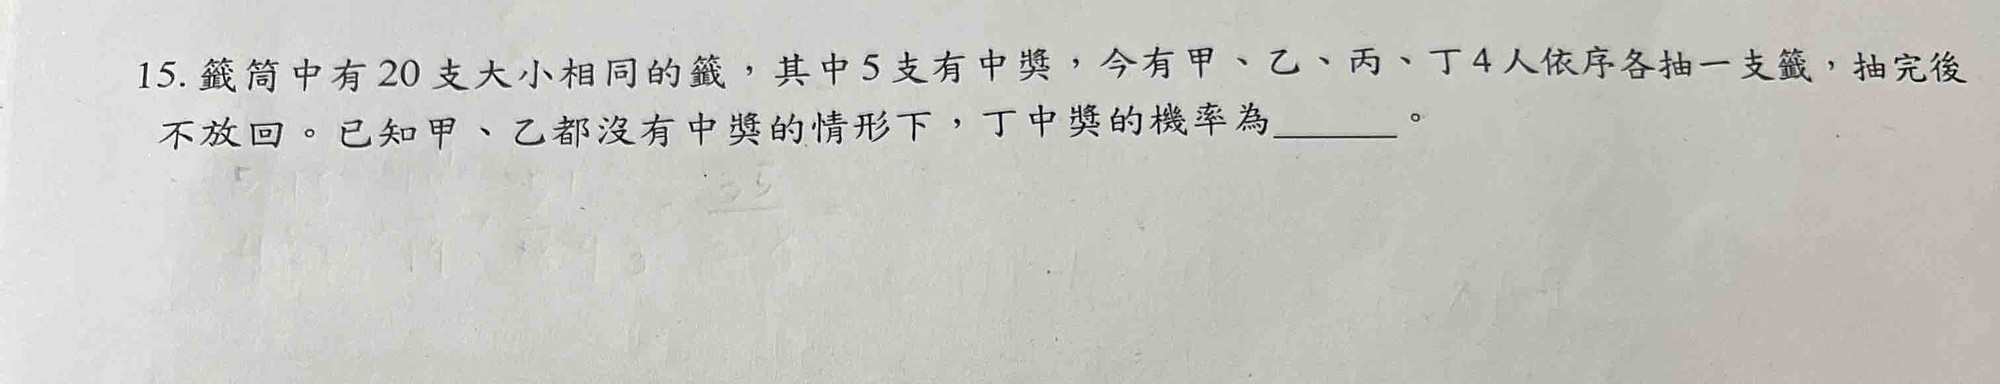 15. 籤筒中有20支大小相同的籤，其中5支有中獎，今有甲、乙、丙、丁4人依序各抽一支籤，抽完後
不放回。已知甲、乙都沒有中獎的情形下，丁中獎的機率為______。